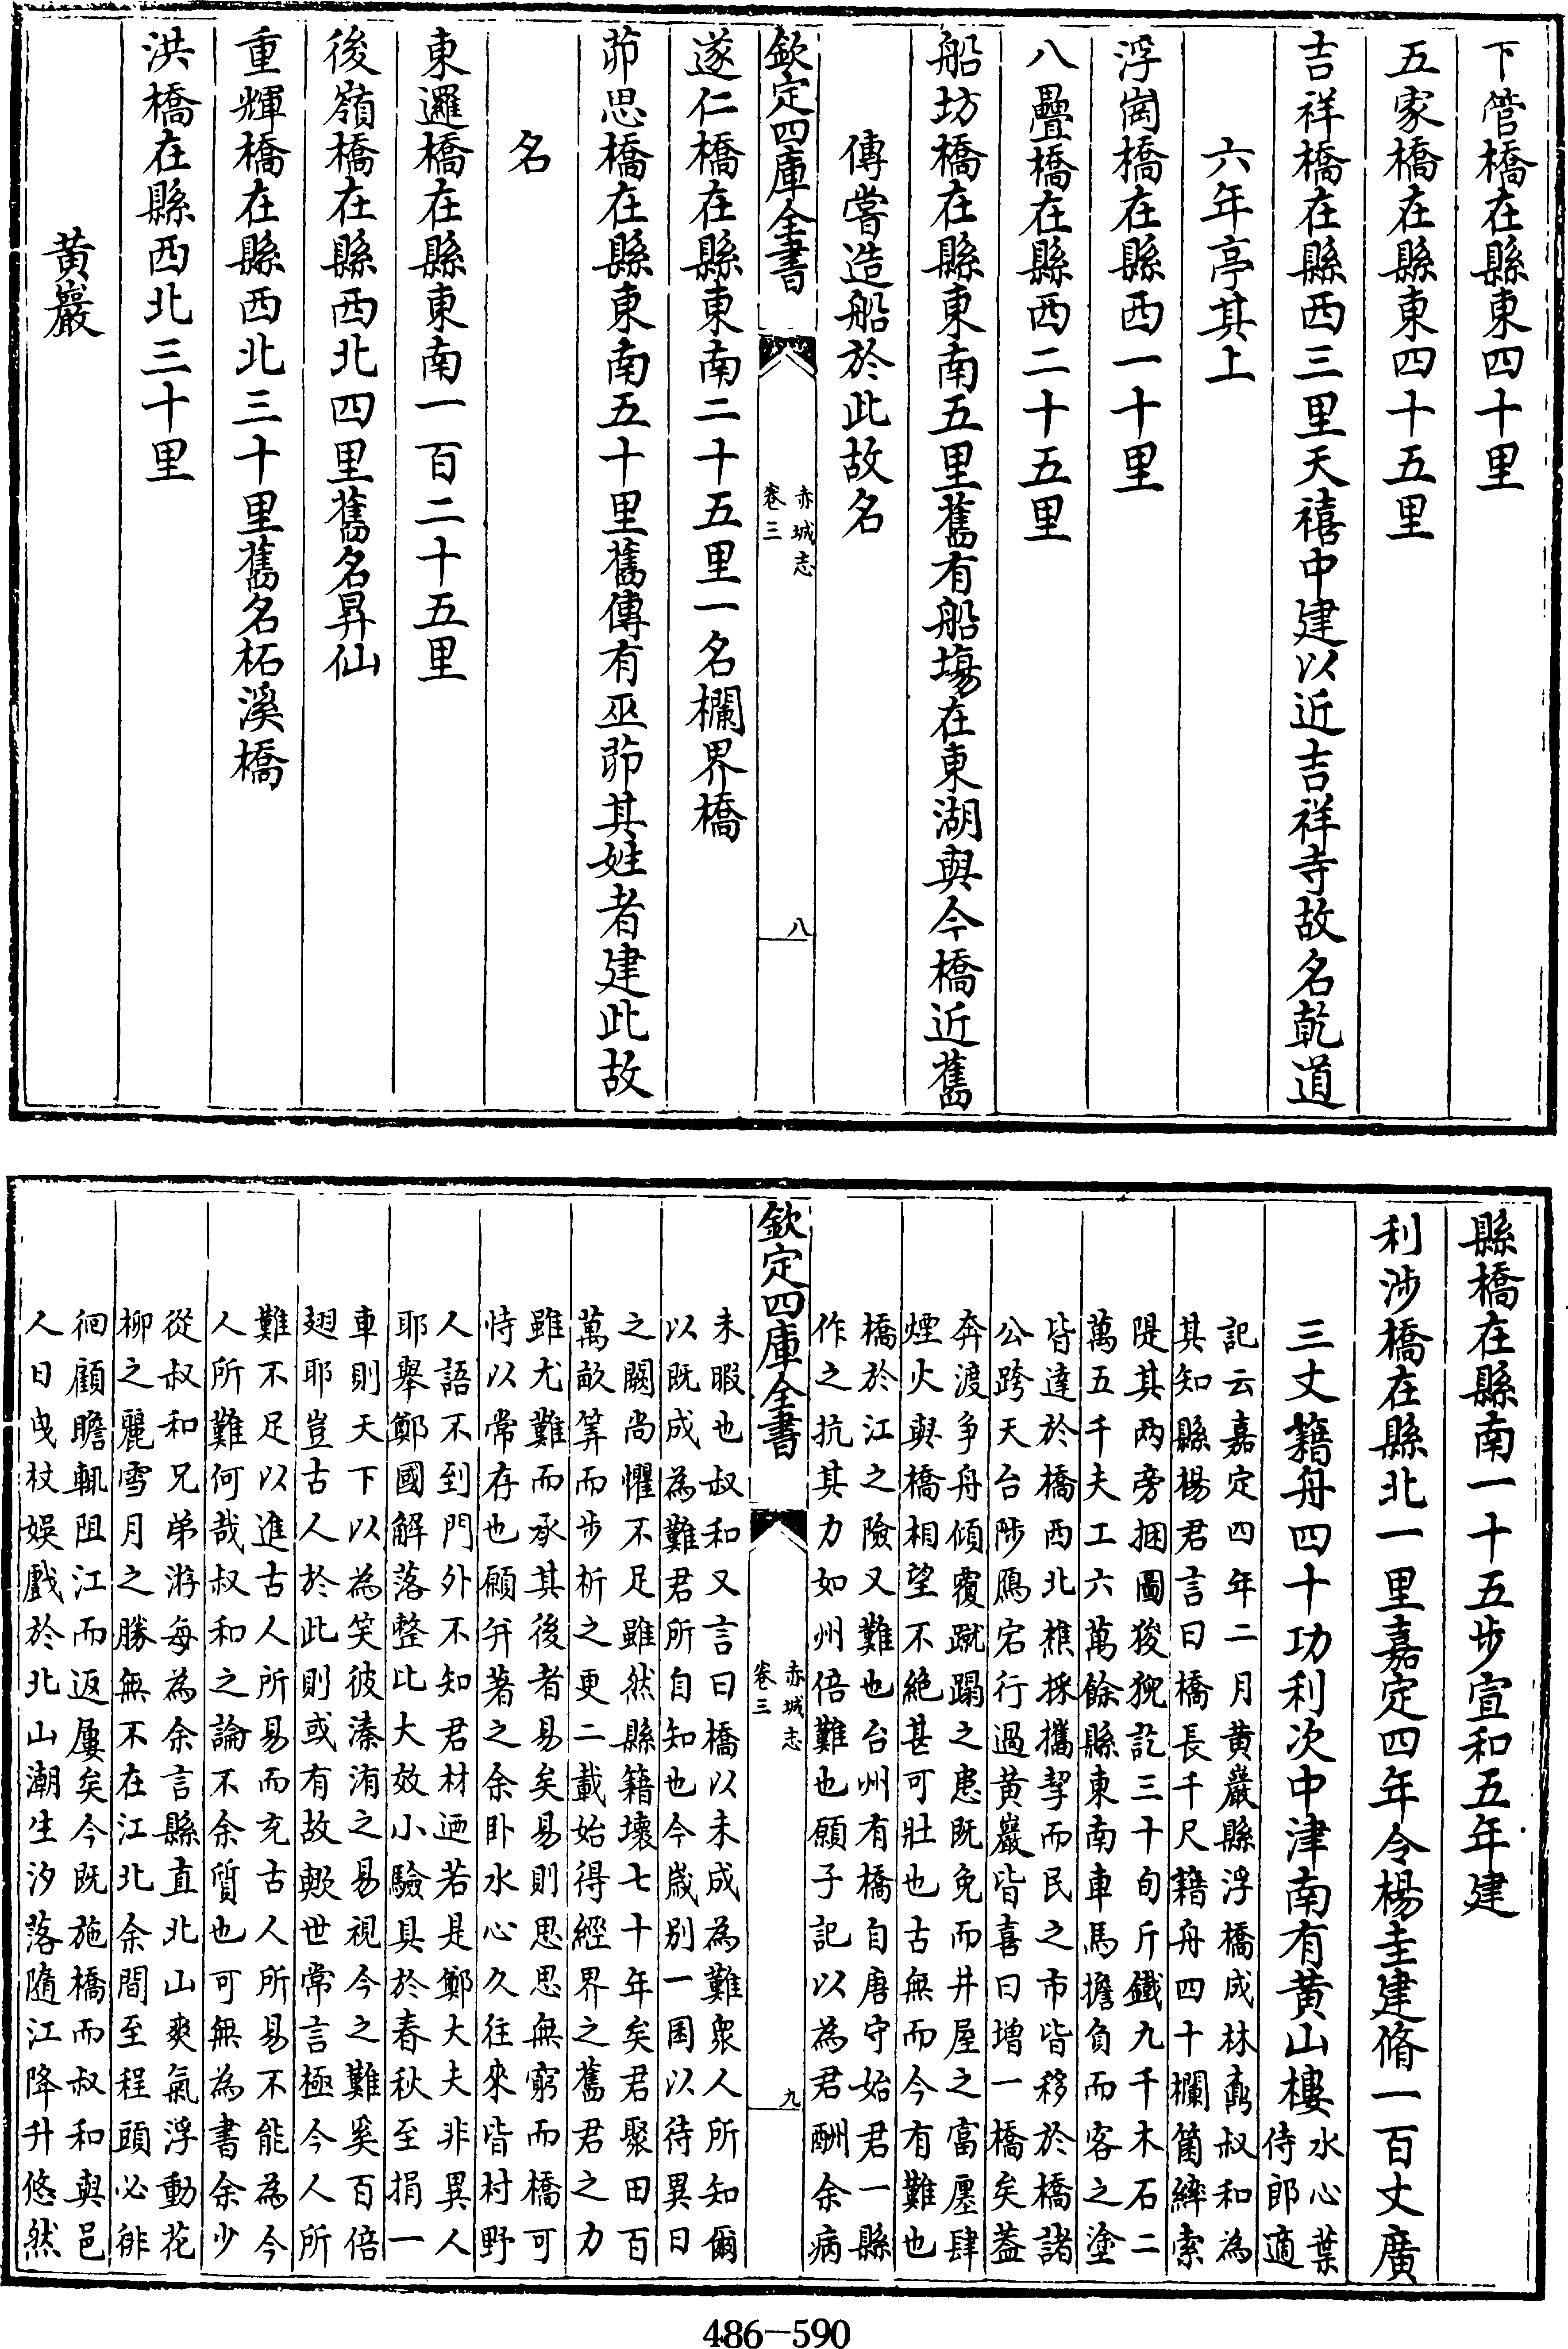 下管橋在縣東四十里
五家橋在縣東四十五里
吉祥橋在縣西三里天禧中建以近吉祥寺故名乾道
六年亭其上
浮崗橋在縣西一十里
八疊橋在縣西二十五里
船坊橋在縣東南五里舊有船塲在東湖與今橋近舊
傳嘗造船於此故名
欽定四庫全書
赤城志
卷三
八
遂仁橋在縣東南二十五里一名欄界橋
茆思橋在縣東南五十里舊傳有巫茆其姓者建此故
名
東邏橋在縣東南一百二十五里
後嶺橋在縣西北四里舊名昇仙
重輝橋在縣西北三十里舊名柘溪橋
洪橋在縣西北三十里
黃巖
縣橋在縣南一十五步宣和五年建
利涉橋在縣北一里嘉定四年令楊圭建脩一百丈廣
三丈籍舟四十功利次中津南有黃山樓
水心葉
侍郎適
記云嘉定四年二月黃巖縣浮橋成林鼒叔和為
其知縣楊君言曰橋長千尺籍舟四十欄箘縴索
隄其两旁捆圖狻猊訖三十旬斤鐵九千木石二
萬五千夫工六萬餘縣東南車馬擔負而客之塗
皆達於橋西北樵採攜挈而民之市皆移於橋諸
公跨天台陟鴈宕行過黃巖皆喜曰增一橋矣葢
奔渡爭舟傾覆蹴蹋之患既免而井屋之富廛肆
煙火與橋相望不絕甚可壯也古無而今有難也
橋於江之險又難也台州有橋自唐守始君一縣
作之抗其力如州倍難也願子記以為君酬余病
欽定四庫全書
赤城志
卷三
九
未暇也叔和又言曰橋以未成為難衆人所知爾
以既成為難君所自知也今歲別一囷以待異日
之闕尚懼不足雖然縣籍壞七十年矣君聚田百
萬畝筭而步析之更二載始得經界之舊君之力
雖尤難而承其後者易矣易則思思無窮而橋可
恃以常存也願并著之余卧水心久往來皆村野
人語不到門外不知君材迺若是鄭大夫非異人
耶舉鄭國解落整比大效小驗具於春秋至捐一
車則天下以為笑彼溱洧之易視今之難奚百倍
翅耶豈古人於此則或有故歟世常言極今人所
難不足以進古人所易而充古人所易不能為今
人所難何哉叔和之論不余質也可無為書余少
從叔和兄弟游每為余言縣直北山爽氣浮動花
柳之麗雪月之勝無不在江北余間至程頭必徘
徊顧瞻輒阻江而返屢矣今既施橋而叔和與邑
人日曳杖娛戲於北山潮生汐落隨江降升悠然
486-590